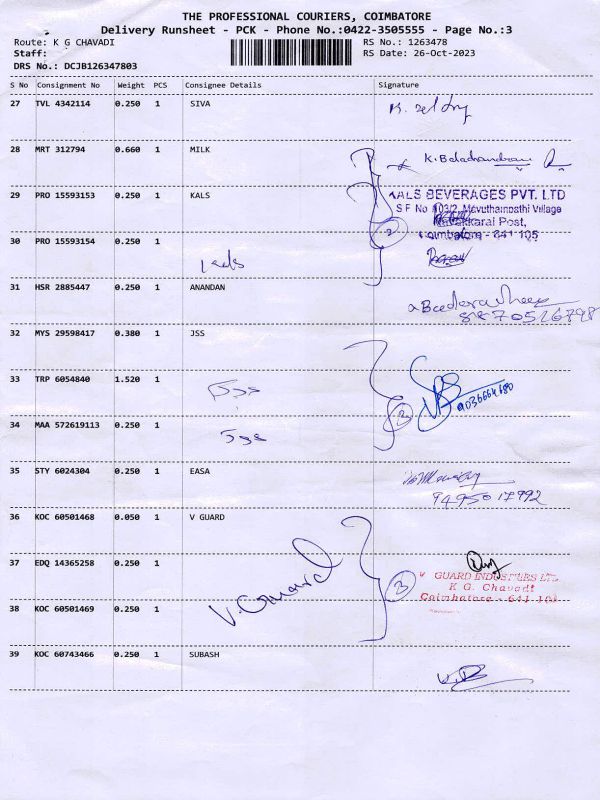 THE PROFESSIONAL COURIERS, COIMBATORE
Delivery Runsheet - PCK - Phone No.:0422-3505555 - Page No.:3
Route: K G CHAVADI
RS No.: 1263478
Staff:
RS Date: 26-Oct-2023
DRS No.: DCJB126347803
S No Consignment No Weight PCS Consignee Details Signature
27 TVL 4342114 0.250 1 SIVA
28 MRT 312794 0.660 1 MILK K. Balachandran
29 PRO 15593153 0.250 1 KALS
KALS BEVERAGES PVT. LTD
S F No 103/2, Mavuthampathi Village
Navakkarai Post,
Coimbatore - 641 105
2
30 PRO 15593154 0.250 1
kals
31 HSR 2885447 0.250 1 ANANDAN
32 MYS 29598417 0.380 1 JSS
33 TRP 6054840 1.520 1 Jss
3
34 MAA 572619113 0.250 1 Jss
35 STY 6024304 0.250 1 EASA
9495017992
36 KOC 60501468 0.050 1 V GUARD
37 EDQ 14365258 0.250 1
V. Guard
3
V GUARD INDUSTRIES LTD.
K G. Chavadi
Coimbatore - 641 105
38 KOC 60501469 0.250 1
39 KOC 60743466 0.250 1 SUBASH